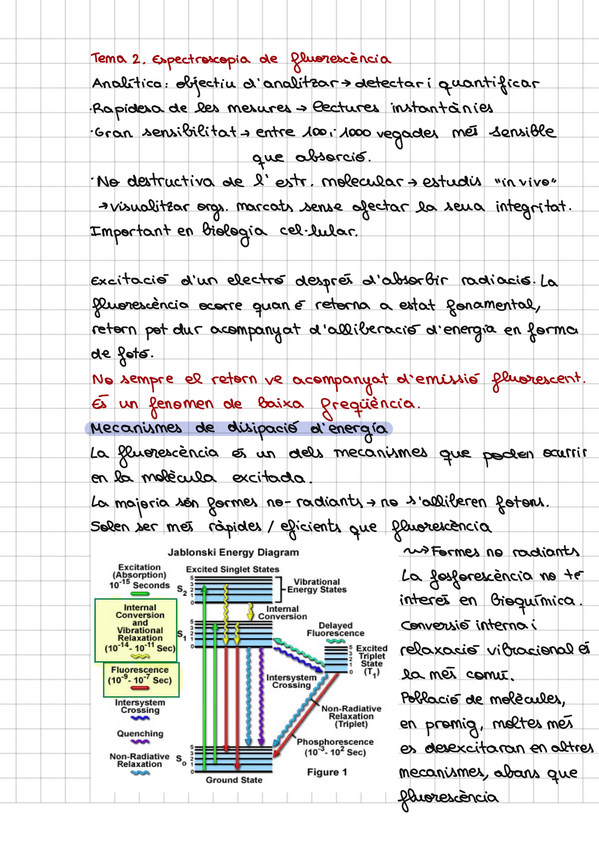 Tema 2. Espectroscopia de fluorescència
Analítica: objectiu d'analitzar → detectar i quantificar
·Rapidesa de les mesures → lectures instantànies
·Gran sensibilitat → entre 100 i 1000 vegades més sensible
que absorció.
·No destructiva de l'estr. molecular → estudis "in vivo"
→ visualitzar orgs. marcats sense afectar la seua integritat.
Important en biologia cel·lular.
Excitació d'un electró després d'absorbir radiació. La
fluorescència ocorre quan é retorna a estat fonamental,
retorn pot dur acompanyat d'alliberació d'energia en forma
de fotó.
No sempre el retorn ve acompanyat d'emissió fluorescent.
És un fenomen de baixa freqüència.
Mecanismes de disipació d'energía
La fluorescència és un dels mecanismes que poden ocurrir
en la molècula excitada.
La majoria són formes no-radiants → no s'alliberen fotons.
Solen ser més ràpides / eficients que fluorescència
Jablonski Energy Diagram
Excitation
(Absorption)
10-15 Seconds
Internal
Conversion
and
Vibrational
Relaxation
(10-14- 10-11 Sec)
Fluorescence
(10-9- 10-7 Sec)
Intersystem
Crossing
Quenching
Non-Radiative
Relaxation
Excited Singlet States
S2
5
4
3
2
1
0
Vibrational
Energy States
Internal
Conversion
S1
5
4
3
2
1
0
Delayed
Fluorescence
5
4
3
2
1
0
Excited
Triplet
State
(T1)
Intersystem
Crossing
Non-Radiative
Relaxation
(Triplet)
Phosphorescence
(10-3- 102 Sec)
S0
5
4
3
2
1
0
Ground State
Figure 1
⇝ Formes no radiants
La fosforescència no té
interés en bioquímica.
Conversió interna i
relaxació vibracional és
la més comú.
Població de molècules,
en promig, moltes més
es desexcitaran en altres
mecanismes, abans que
fluorescència